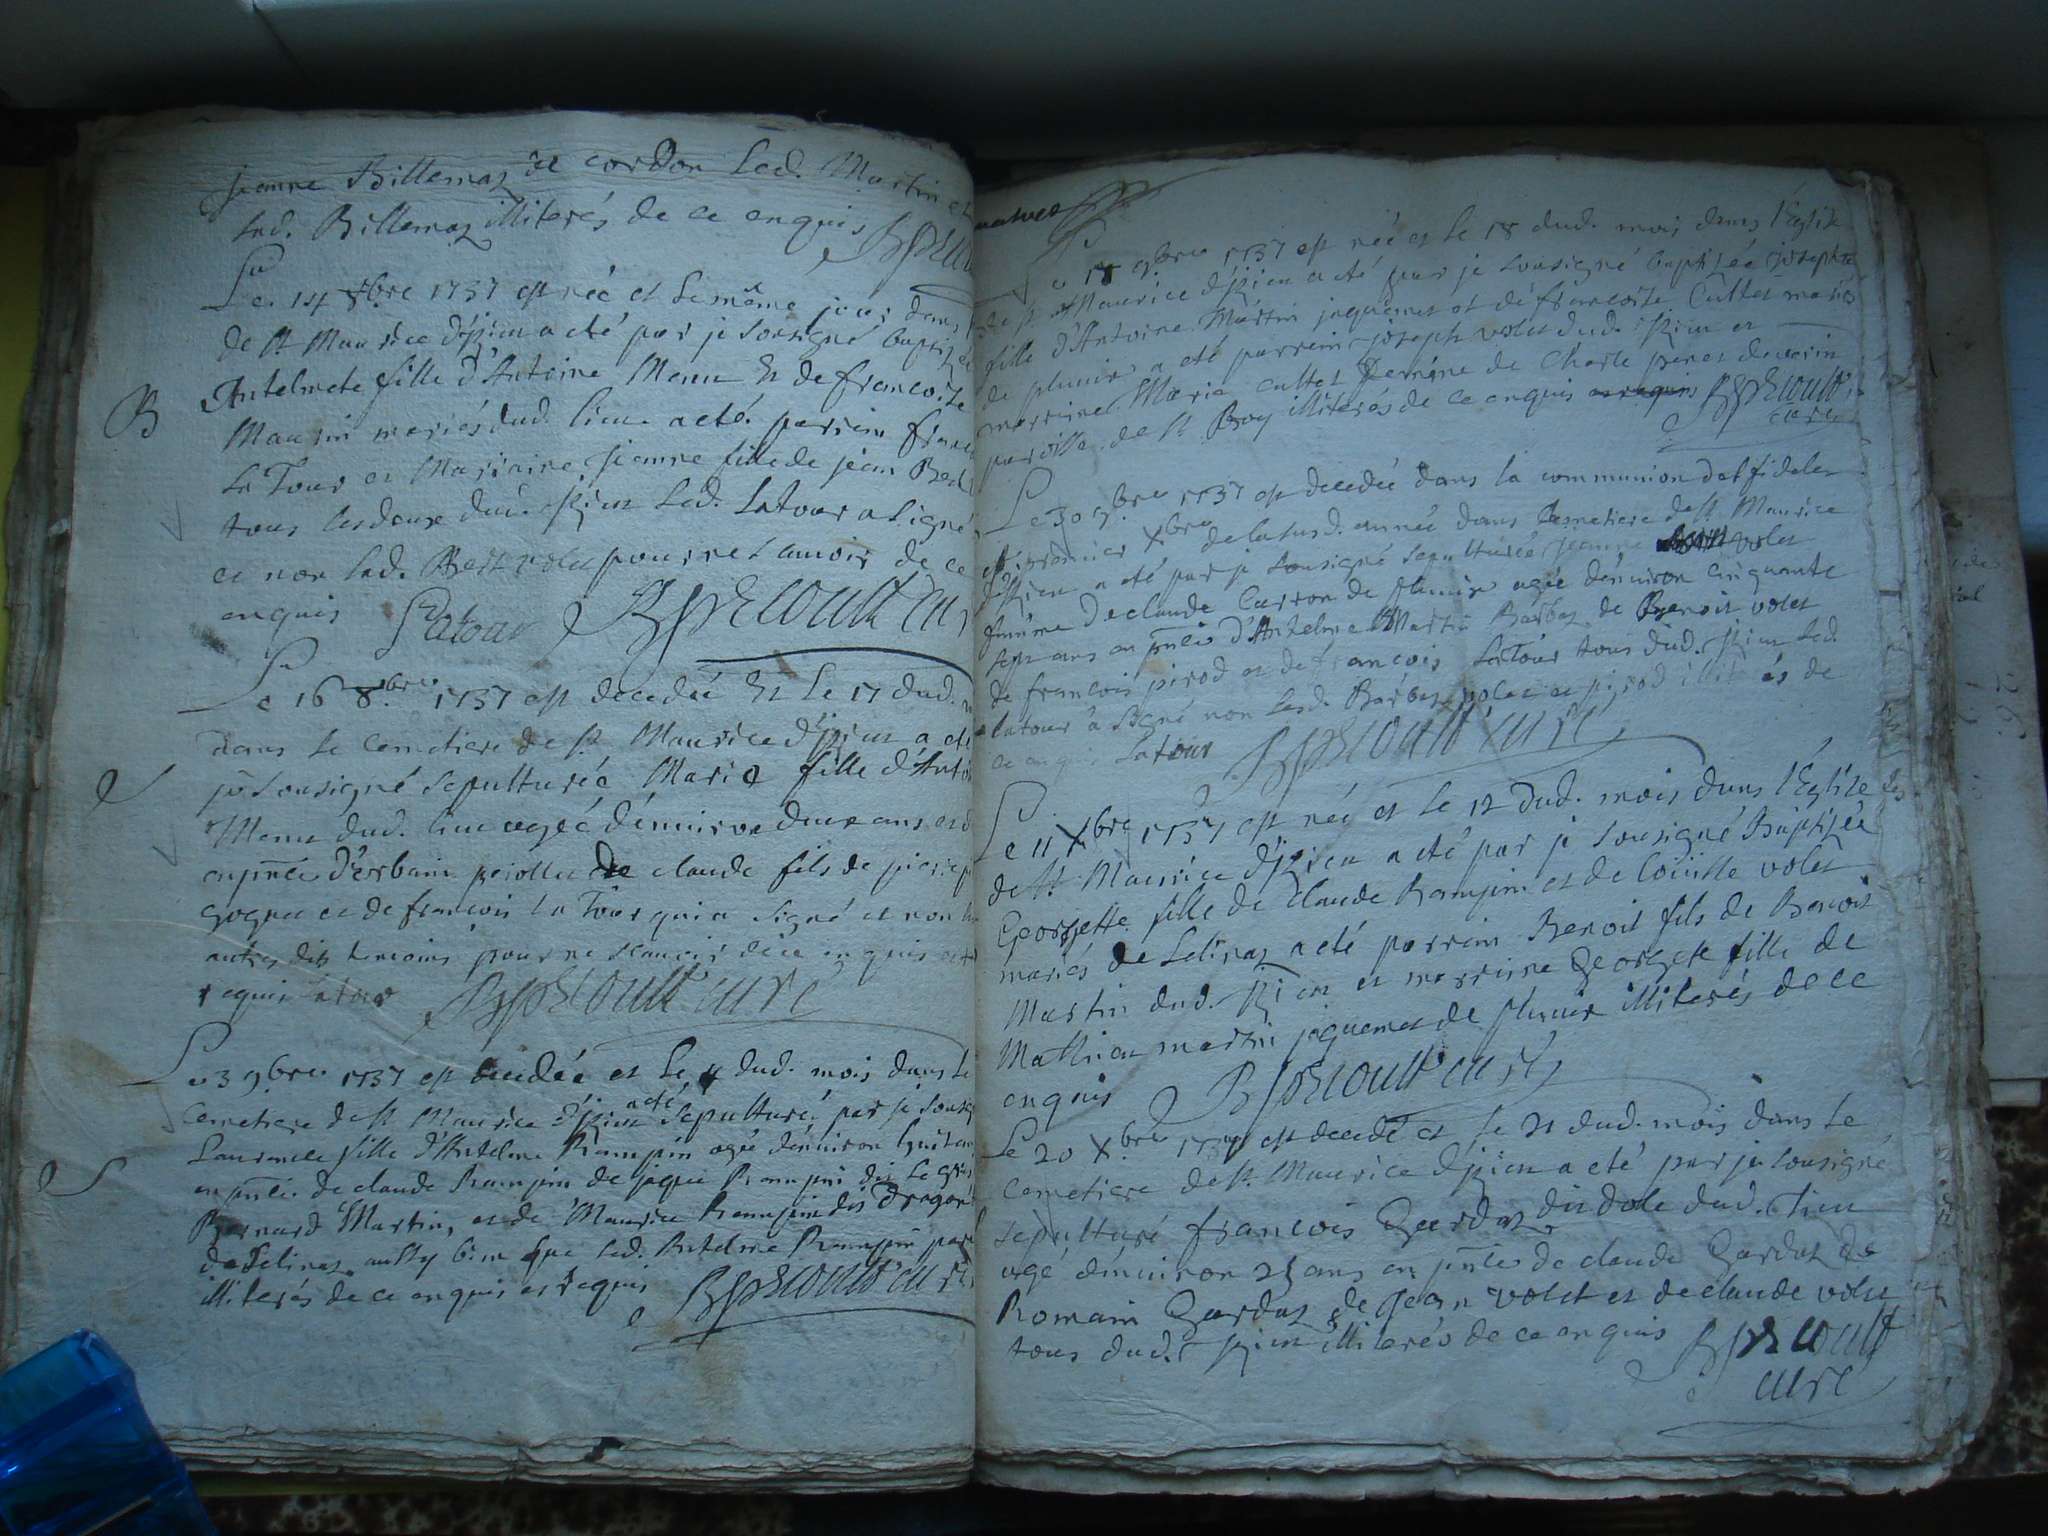 jeanne Billemaz de cordon Led. Martin et
lad. Billemaz illiterés de ce enquis
Le 14 8bre 1737 est née et le même jour dans
de St Maurice d'Izieu a eté par je sousigné baptizée
B Antelmete fille d'Antoine Menu Et de francoise
Maurin mariés dud. lieu a eté parrein
La Tour et Marraine jeanne fille de jean
tous les deux dud. Izieu Led. Latour a signé
et non lad. pour ne scauoir de ce
enquis Latour curé
Le 16 8bre 1737 est decedée Et Le 17 dud.
dans le cemetiere de St Maurice d'Izieu a eté
je sousigné sepulturée Marie fille d'Antoi
S Menu dud. lieu agée d'enuiron deux ans
en pñce d'Erbain de claude fils de pierre
et de francois La Tour qui a signé et non les
autres dits temoins pour ne scauoir de ce enquis et
requis latour curé
Le 3 9bre 1737 est decedée et Le 4 dud. mois dans le
cemetiere de St Maurice d'Izieu a eté sepulturé par je sousig
Laurence fille d'Antelme Rampin agée d'enuiron huit
S en pñce de claude Rampin de jaque Rampin dit Le gris
Bernard Martin, et de Maurice Rampin dit dragon
de Selinaz aussy bien que led. Antelme Rampin
illiterés de ce enquis et requis curé
Le 18 9bre 1737 est née et le 18 dud. mois dans l'Eglise
de St Maurice d'Izieu a eté par je sousigné baptizée josephte
fille d'Antoine Martin jaquemet et de francoise Cultet mariés
de plunix a eté parrein joseph volet dud. Izieu et
marreine Marie cultet femme de Charle
paroisse de St Boy illiterés de ce enquis
curé
Le 30 9bre 1737 est decedée dans la communion des fideles
et premier Xbre de la susd. année dans cemetiere de St Maurice
d'Izieu a eté par je sousigné sepulturée jeanne volet
femme de claude Carron de plunix agée d'enuiron cinquante
sept ans en pñce d'Antelme Martin Barbaz de Benoit volet
de francois pirod et de francois LaTour tous dud. Izieu Led.
latour a signé non lesd. Barbaz volet et pirod illiterés de
ce enquis latour curé
Le 11 Xbre 1737 est née et le 12 dud. mois dans l'Eglise
de St Maurice d'Izieu a eté par je sousigné Baptizée
Georgette fille de Claude Rampin et de Loüise volet
mariés de Selinaz a eté parrein Benoit fils de Benoit
Martin dud. Izieu et marreine Georgete fille de
Mathieu martin jaquemet de plunix illiterés de ce
enquis curé
Le 20 Xbre 1737 est decedé et le 21 dud. mois dans le
cemetiere de St Maurice d'Izieu a eté par je sousigné
sepulturé francois Gardaz dit dole dud. lieu
agé d'enuiron ans en pñce de claude Gardaz de
Romain Gardaz de jean volet et de claude volet
tous dud. Izieu illiterés de ce enquis
curé